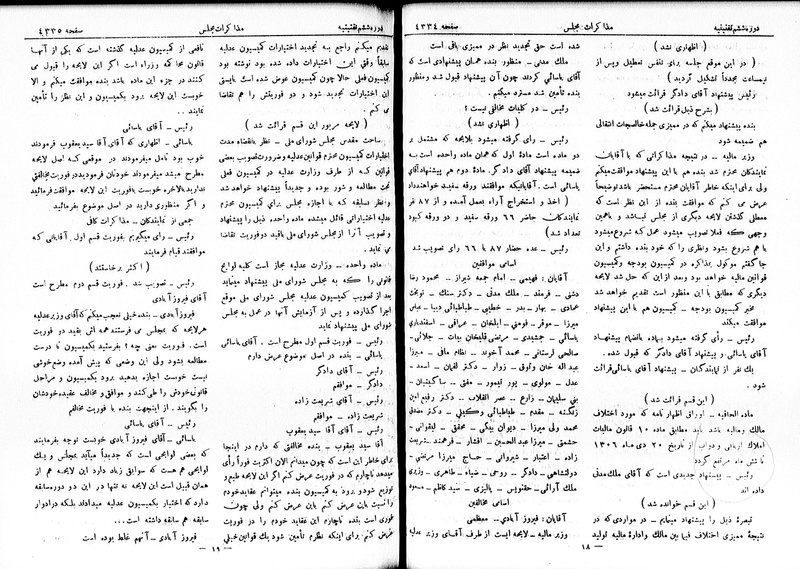 دوره ششم تقنینیه
مذاکرات مجلس
صفحه ٤٣٣٤
( اظهاری نشد )
( در این موقع جلسه برای تنفس تعطیل و پس از
نیمساعت مجدداً تشکیل گردید )
رئیس پیشنهاد آقای دادگر قرائت میشود
( بشرح ذیل قرائت شد )
بنده پیشنهاد میکنم که در ممیزی جمله خالصجات انتقالی
هم ضمیمه شود
وزیر مالیه ـ در نتیجه مذاکراتی که با آقایان
نمایندگان محترم شد بنده هم با این پیشنهاد موافقت میکنم
ولی برای اینکه خاطر آقایان محترم مستحضر باشد توضیحاً
عرض می کنم که موافقت بنده از این نظر است که
معطلی گذشتن لایحه دیگری از مجلس نباشد و بهمین
وجهی که فعلا تصویب میشود عمل که شروع میشود
با هم شروع بشود ونظری را که خود بنده داشتم و این
جا گفتم موکول بمذاکره در کمیسیون بودجه وکمیسیون
قوانین مالیه خواهد بود وبعد از این که حل شد لایحه
دیگری که مطابق با این منظور است تقدیم خواهد شد
مخبر کمیسیون بودجه ـ کمیسیون هم با این پیشنهاد
موافقت میکند
رئیس ـ رأی گرفته میشود بماده بانضمام پیشنهاد
آقای یاسائی و پیشنهاد آقای دادگر که قبول شده .
یك نفر از نمایندگان ـ پیشنهاد آقای یاسائی قرائت
شود .
( این قسم قرائت شد )
ماده الحاقیه ـ اوراق اظهار نامه که مورد اختلاف
مالك ومالیه باشد باید مطابق ماده ١٠ قانون مالیات
املاك اربابی و دواب از تاریخ ٢٠ دی ماه ١٣٠٦
تا شش ماه مرتفع گردد
رئیس ـ پیشنهاد جدیدی است که آقای ملك مدنی
داده اند
( این قسم خوانده شد )
تبصرهٔ ذیل را پیشنهاد مینمایم ـ در مواردی که در
نتیجهٔ ممیزی اختلاف فیما بین مالك وادارهٔ مالیه تولید
شده است حق تجدید نظر در ممیزی باقی است
ملك مدنی ـ منظور بنده همان پیشنهادی است که
آقای یاسائی کردند چون آن پیشنهاد قبول شد و منظور
بنده تأمین شد مسترد میکنم .
رئیس ـ در کلیات مخالفی نیست ؟
( اظهاری نشد )
رئیس ـ رای گرفته میشود بلایحه که مشتمل بر
دو ماده است مادهٔ اول که همان ماده واحده است بـه
ضمیمه پیشنهاد آقای دادگر . مادهٔ دوم هم پیشنهاد آقای
یاسائی است . آقایانیکه موافقند ورقه سفید خواهند داد
( اخذ و استخراج آراء بعمل آمده و از ٨٧ نفر
نمایندگان حاضر ٦٦ ورقه سفید و دو ورقه کبود
تعداد شد )
رئیس ـ عده حضار ٨٧ با ٦٦ رای تصویب شد
اسامی موافقین
آقایان : فهیمی ـ امام جمعه شیراز ـ محمود رضا
دشتی ـ فرمند ـ ملك مدنی ـ دکتر سنك ـ نوبخت
عمادی ـ بهار ـ بدر ـ خطیبی ـ طباطبائی دیبا ـ عباس
میرزا ـ موقر ـ قومی ـ ایلخان ـ عراقی ـ اسفندیاری
یاسائی ـ جمشیدی ـ مرتضی قلیخان بیات ـ جلائی ـ
صالحی لرستانی ـ محمد آخوند ـ نظام مافی ـ میرزا
عبدالله خان وثوق ـ زوار ـ دکتر لقمان ـ اسعد ـ
عدل ـ مولوی ـ پور تیمور ـ مفتی ـ ساکینیان ـ
بنی سلیمان ـ زارع ـ عصر انقلاب ـ دکتر رفیع امین
زنگنه ـ مقدم ـ طباطبائی وکیلی ـ دکتر مصدق
محمد ولی میرزا ـ دیوان بیگی ـ محقق ـ لیقوانی ـ
حشمتی ـ میرزا عبدالحسین ـ افشار ـ فرهمند ـ شریعت
زاده ـ اعتبار ـ شیروانی ـ حاج میرزا مرتضی ـ
دولتشاهی ـ دادگر ـ روحی ـ ضیاء ـ طاهری ـ وزیری
ملك آرائی ـ حقنویس ـ پالیزی ـ سید کاظم ـ مسعود
اسامی مخالفین
آقایان : فیروز آبادی ـ معظمی
وزیر مالیه ـ لایحه ایست از طرف آقای وزیر عدلیه
ـ ١٨ ـ
مذاکرات مجلس
صفحه ٤٣٣٥
تقدیم میکنم راجع به تجدید اختیارات کمیسیون عدلیه
سابقاً وقتی این اختیارات داده شده بود نوشته بود
کمیسیون فعلی حالا چون کمیسیون عوض شده است بایستی
این اختیارات تجدید شود و دو فوریتش را هم تقاضا
می کنم .
( لایحه مزبور این قسم قرائت شد )
ساحت مقدس مجلس شورای ملی ـ نظر بانقضاء مدت
اختیارات کمیسیون محترم قوانین عدلیه و ضرورت تصویب بعضی
قوانین که از طرف وزارت عدلیه در کمیسیون فعلی
تحت مطالعه و شور بوده و جدیداً پیشنهاد خواهد شد
ونظر بسابقه که با اجازه مجلس برای کمیسیون محترم
عدلیه اختیاراتی قائل میشده ماده واحده ذیل را پیشنهاد
و تصویب آنرا از مجلس شورای ملی باقید دو فوریت تقاضا
می نماید .
ماده واحده ـ وزارت عدلیه مجاز است کلیه لوایح
قانونی را که به مجلس شورای ملی پیشنهاد مینماید
بعد از تصویب کمیسیون عدلیه مجلس شورای ملی موقع
اجرا گذارده و پس از آزمایش آنها در عمل به مجلس
شورای ملی پیشنهاد نماید
رئیس ـ فوریت قسم اول مطرح است . آقای یاسائی
یاسائی ـ بنده در اصل موضوع عرض دارم
رئیس ـ آقای دادگر
دادگر ـ موافقم
رئیس ـ آقای شریعت زاده
شریعت زاده ـ موافقم
رئیس ـ آقای آقا سید یعقوب
آقا سید یعقوب ـ بنده مخالفتی که دارم در اینجا
برای خاطر این است که چون میدانم الان اکثریت فوراً رأی
میدهند ناچارم که در فوریت عرض کنم اگر این لایحه طبع و
توزیع شود و برود به کمیسیون بنده میتوانم عقاید خودم
را نسبت باین عرض کنم ولی چون
فوری است بنده ناچارم این عقاید خودم را در فوریت
عرض کنم برای اینکه نظرم تأمین شود یك قوانین خیلی
ناقصی از کمیسیون عدلیه گذشته است که یکی از آنها
قانون محاکمه وزراء است اگر این لایحه را قبول می
کنند در جزء این ماده باشد بنده موافقت میکنم و الا
خوبست این لایحه برود بکمیسیون و این نظر را تأمین
نمایند ..
رئیس ـ آقای یاسائی
یاسائی ـ اظهاری که آقای آقا سید یعقوب فرمودند
خوب بود تامل میفرمودند در موقعی که اصل لایحه
مطرح میشد میفرمودند خودتان فرمودید در فوریت مخالفتی
ندارید بالاخره خوبست بافوریت این لایحه موافقت فرمائید
و اگر منظوری دارید در اصل موضوع بفرمائید
جمعی از نمایندگان ـ مذاکرات کافی
رئیس ـ رای میگیریم بفوریت قسم اول . آقایانی که
موافقند قیام فرمایند
( اکثر برخاستند )
رئیس ـ تصویب شد . فوریت قسم دوم مطرح است
آقای فیروز آبادی
فیروز آبادی ـ بنده خیلی تعجب میکنم که آقای وزیر عدلیه
هر لایحه که بمجلس می فرستند همه اش بقید دو فوریت
است . فوریت معنی چه ؟ بفرستید بکمیسیون تا درست
مطالعه بشود ولی این وضعی که پیش آمده وضع خوشی
نیست خوبست اجازه بدهید برود بکمیسیون و مراحل
قانونی خودش را طی کند و موافق و مخالف عقیده خودشان
را بگویند . از اینجهت بنده با فوریت مخالفم
رئیس ـ آقای یاسائی
یاسائی ـ آقای فیروز آبادی خوبست توجه بفرمایند
که بعضی لوایحی است که جدیداً میآید بمجلس و یك
لوایحی هم هست که سوابق زیاد دارد این لایحه هم از
همان قبیل است این لایحه نه تنها در این دو دوره سابقه
دارد که اختیار بکمیسیون عدلیه میدادند بلکه در ادوار
سابقه هم سابقه داشته است ...
فیروز آبادی ـ آنهم غلط بوده است
ـ ١٩ ـ